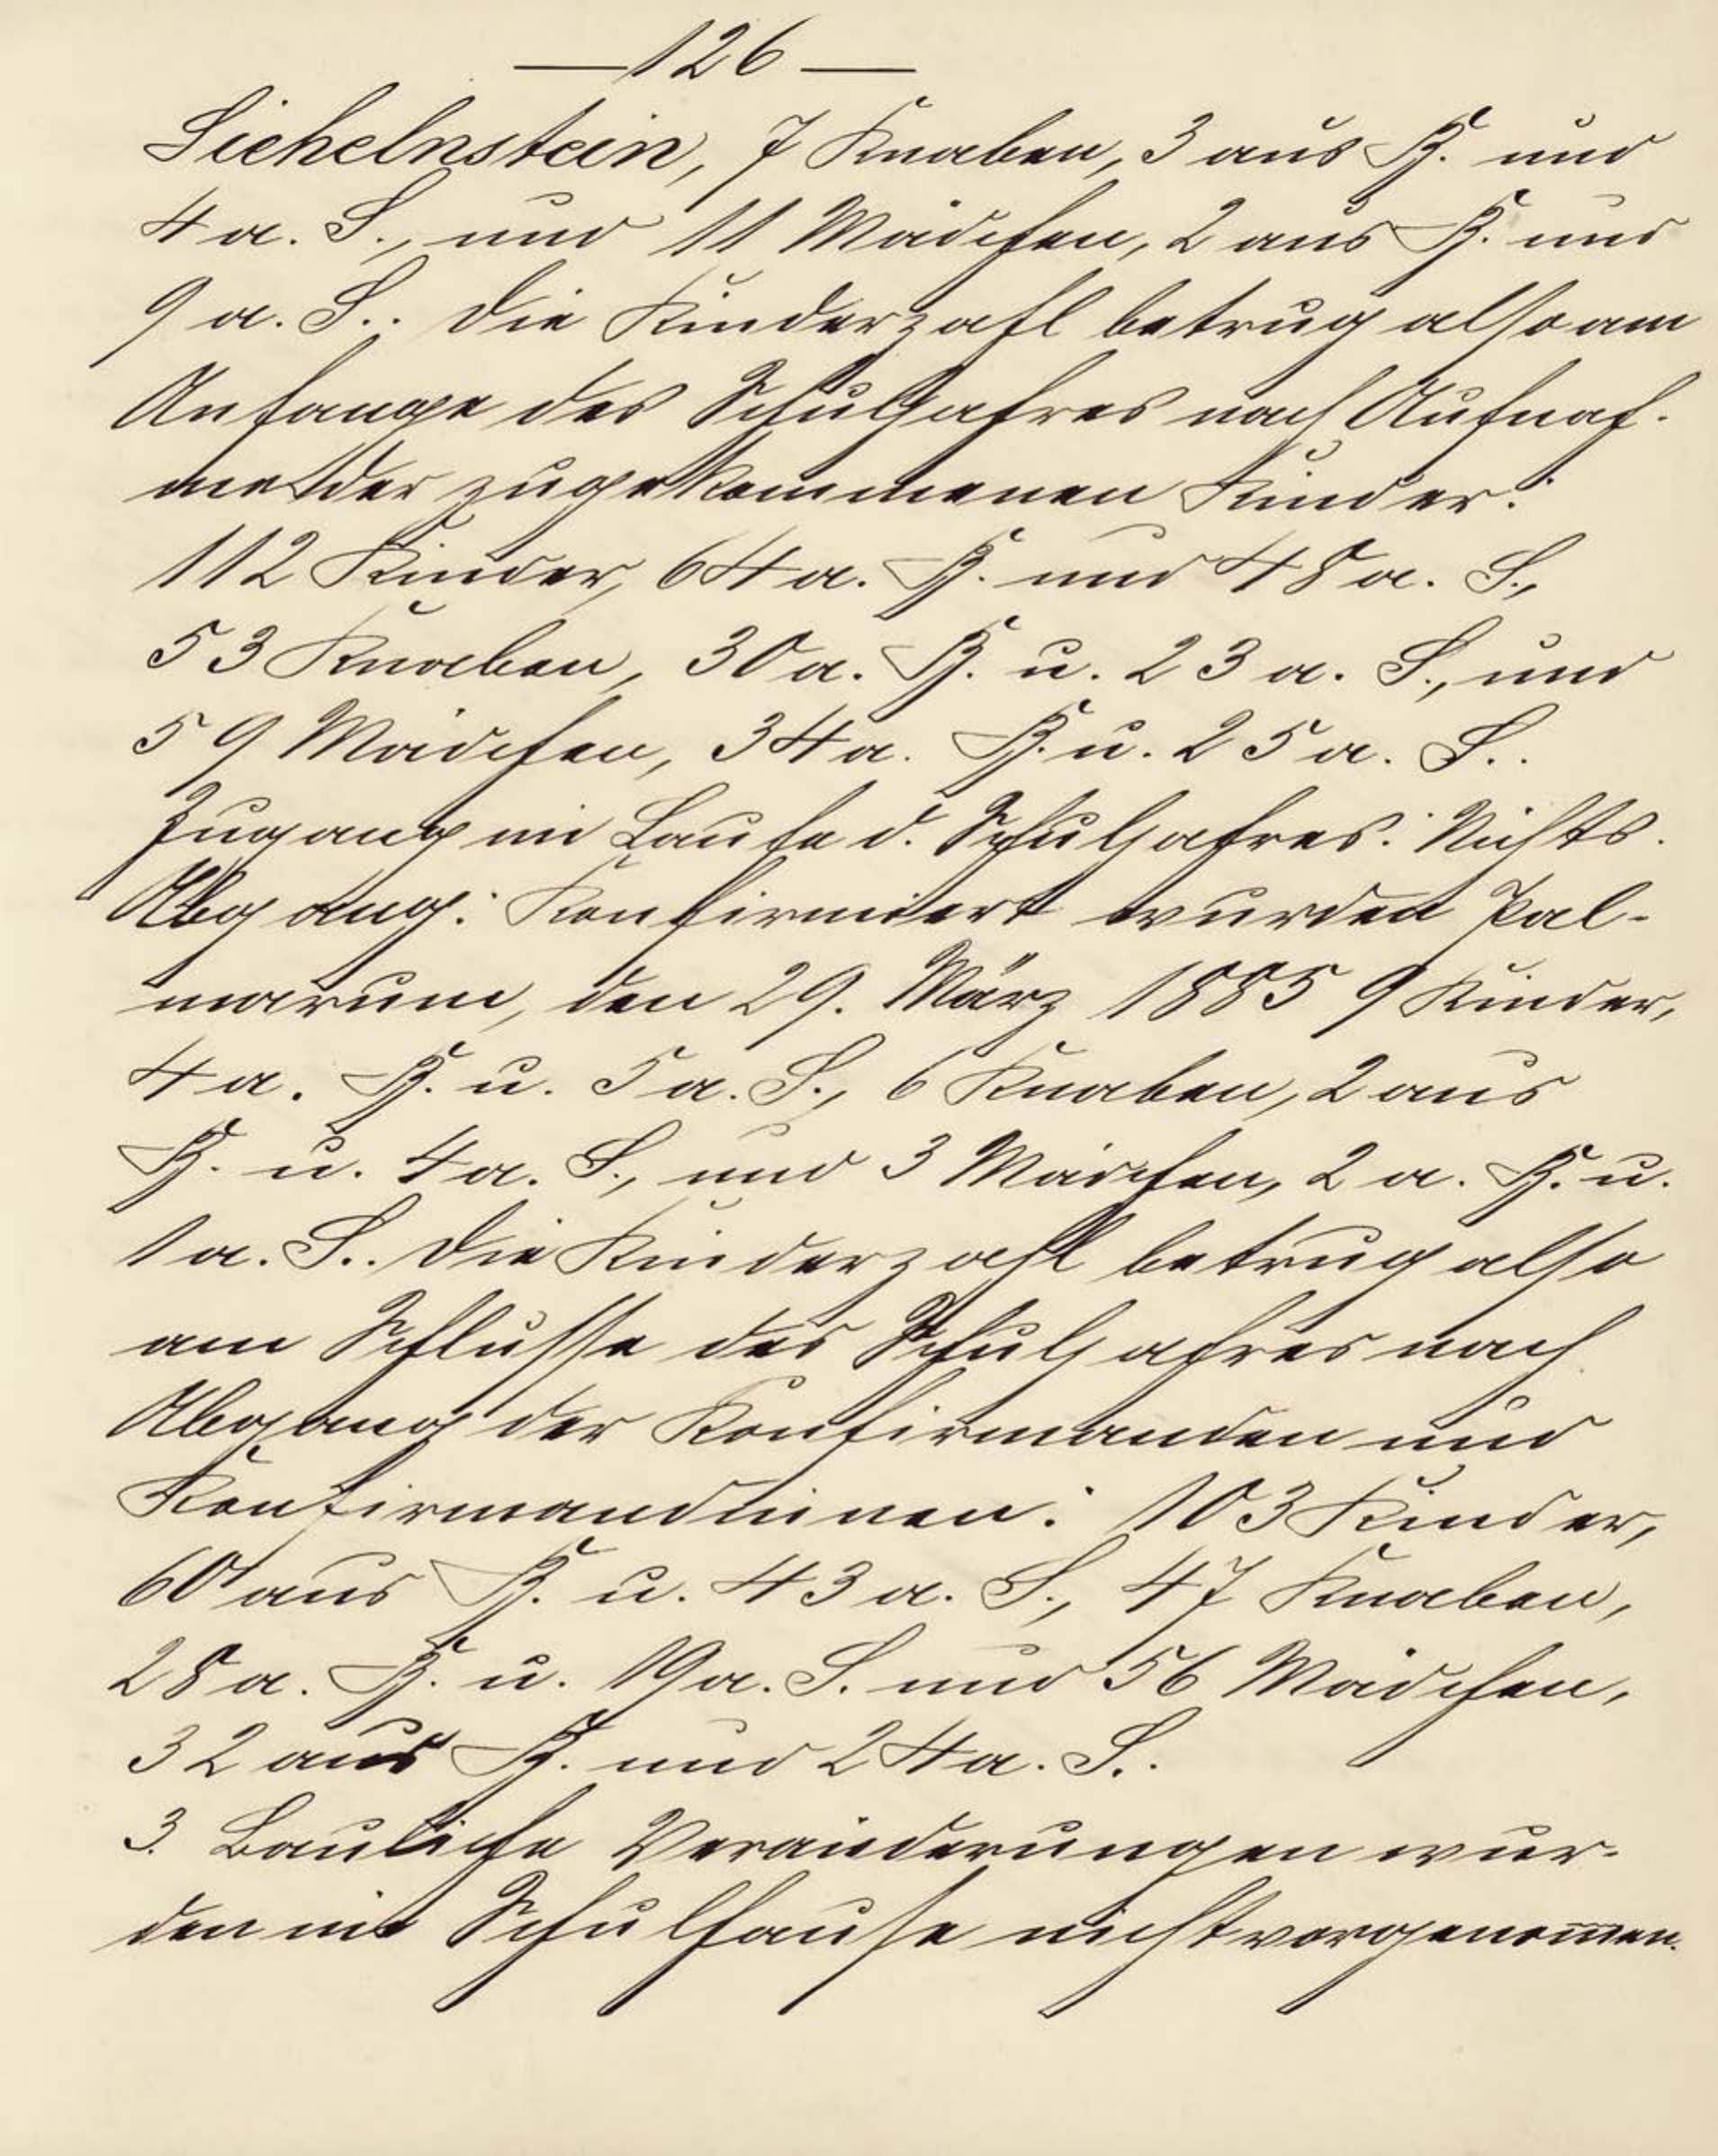 —126—
Sichelnstein, 7 Knaben, 3 aus B. und
4 a. S., und 11 Mädchen, 2 aus B. und
9 a. S.. Die Kinderzahl betrug also am
Anfange des Schuljahres nach Aufnah-
me der zugekommenen Kinder:
112 Kinder, 64 a. B. und 48 a. S.,
53 Knaben, 30 a. B. u. 23 a. S., und
59 Mädchen, 34 a. B. u. 25 a. S..
Zugang im Laufe d. Schuljahres: Nichts.
Abgang: Konfirmiert wurden Pal-
marum, den 29. März 1885 9 Kinder,
4 a. B. u. 5 a. S., 6 Knaben, 2 aus
B. u. 4 a. S., und 3 Mädchen, 2 a. B. u.
1 a. S.. Die Kinderzahl betrug also
am Schlusse des Schuljahres nach
Abgang der Konfirmanden und
Konfirmandinnen: 103 Kinder,
60 aus B. u. 43 a. S., 47 Knaben,
28 a. B. u. 19 a. S. und 56 Mädchen,
32 aus B. und 24 a. S..
3. Bauliche Veränderungen wur-
den im Schulhause nicht vorgenom̅en.